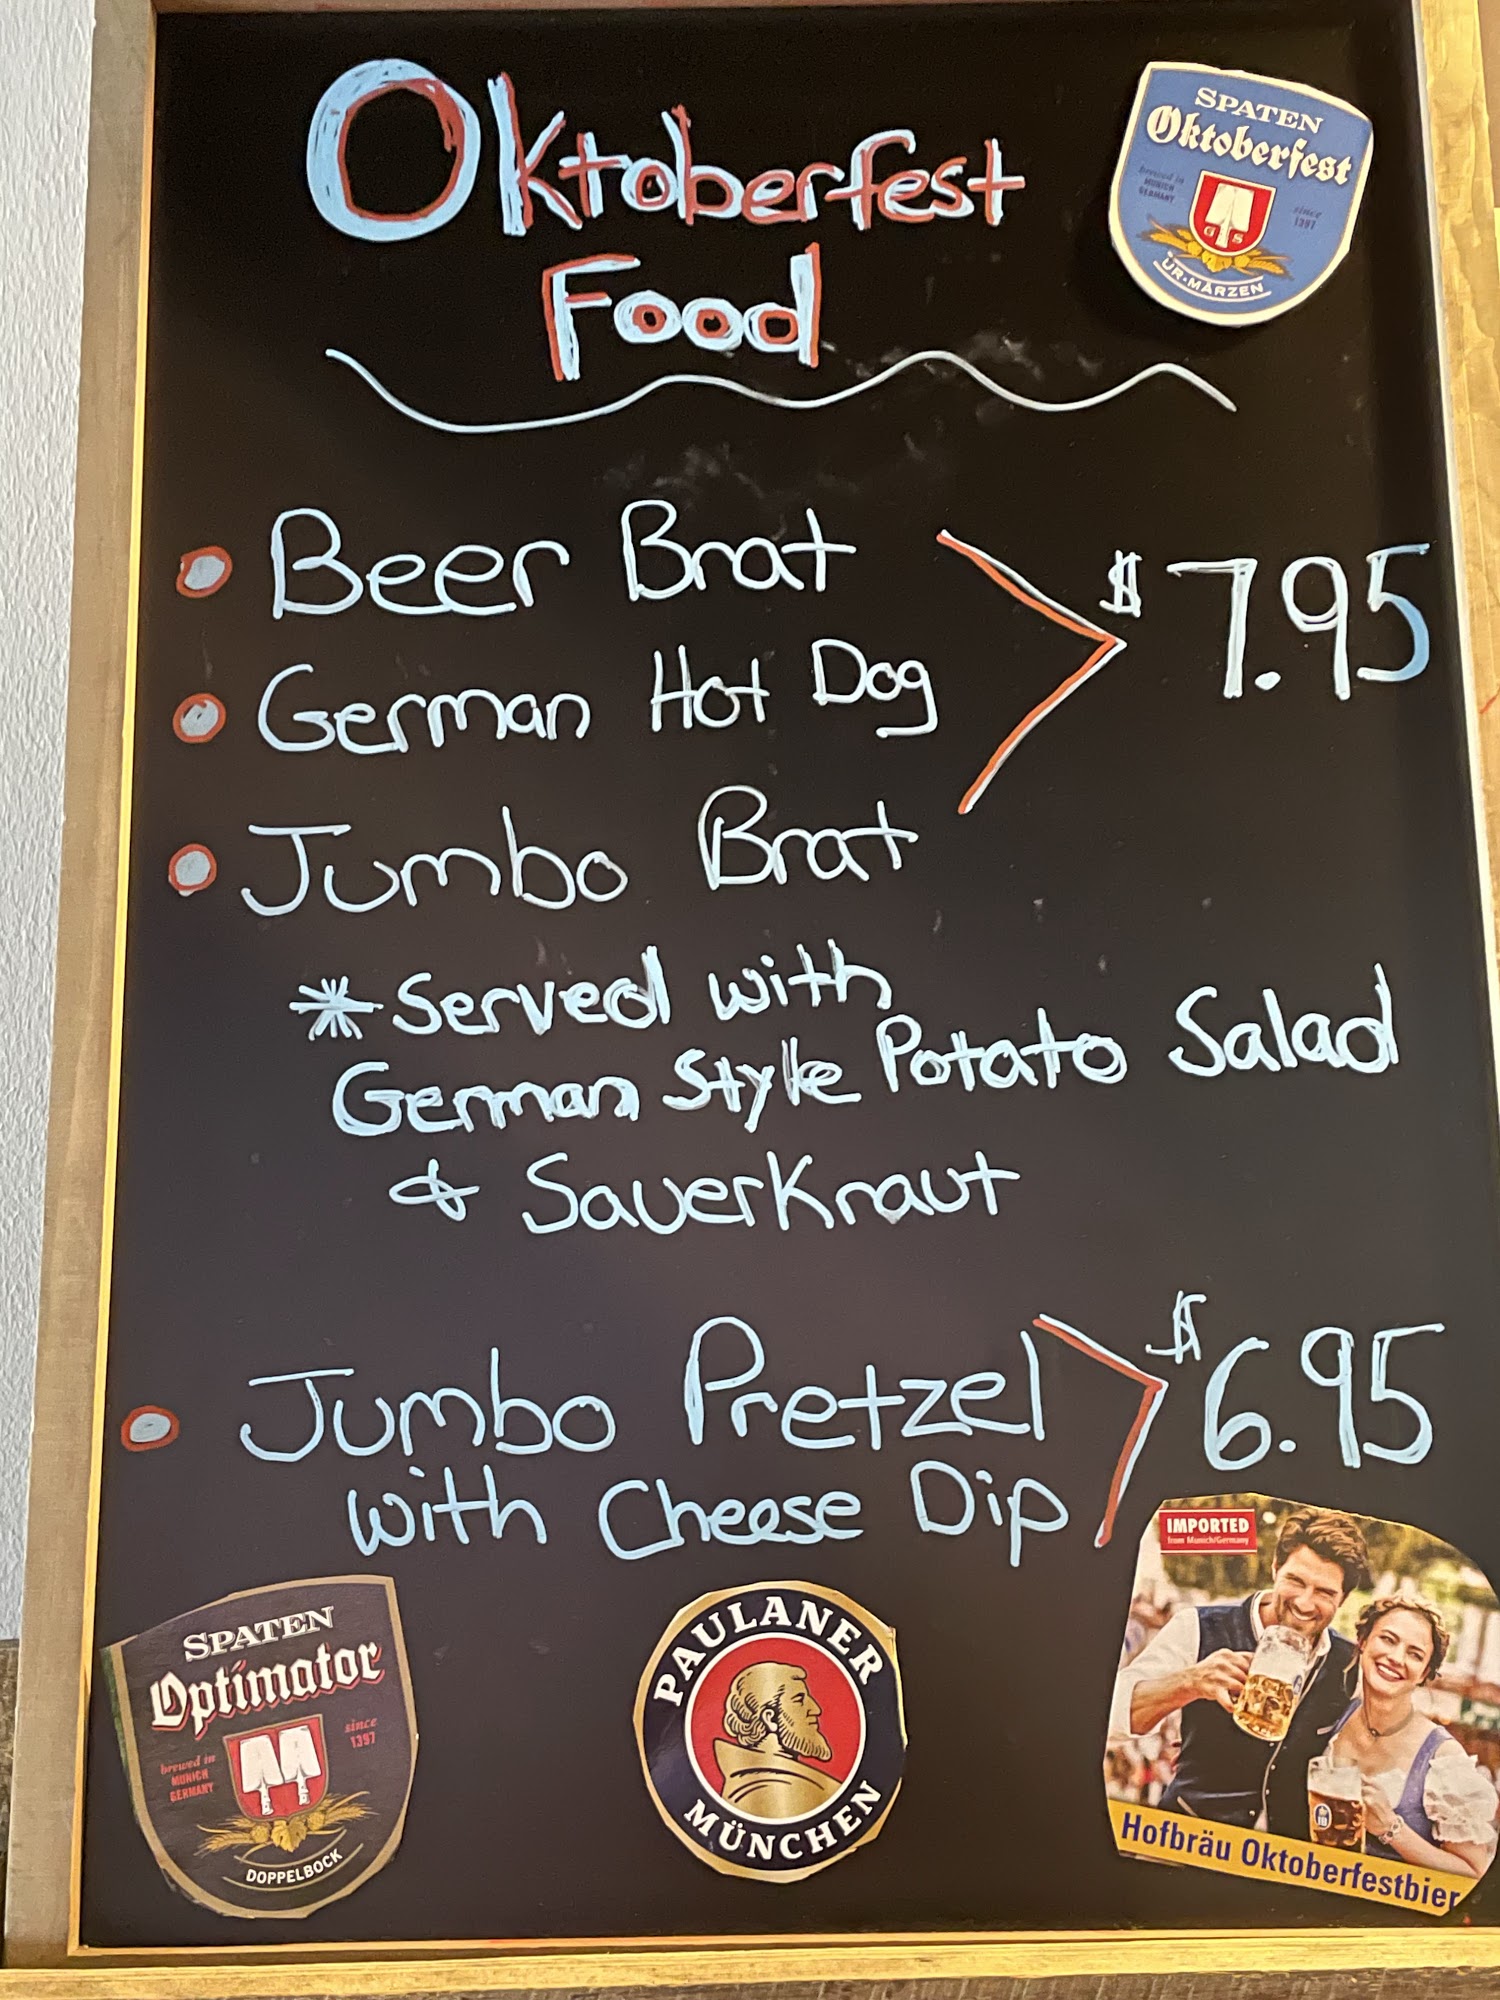 Oktoberfest
Food
SPATEN
Oktoberfest
brewed in
MUNICH
GERMANY
since
1397
G S
UR-MÄRZEN
Beer Brat
German Hot Dog
$7.95
Jumbo Brat
*Served with
German Style Potato Salad
& Sauerkraut
Jumbo Pretzel
with Cheese Dip
$6.95
SPATEN
Optimator
brewed in
MUNICH
GERMANY
since
1397
DOPPELBOCK
PAULANER
MÜNCHEN
IMPORTED
from Munich/Germany
Hofbräu Oktoberfestbier